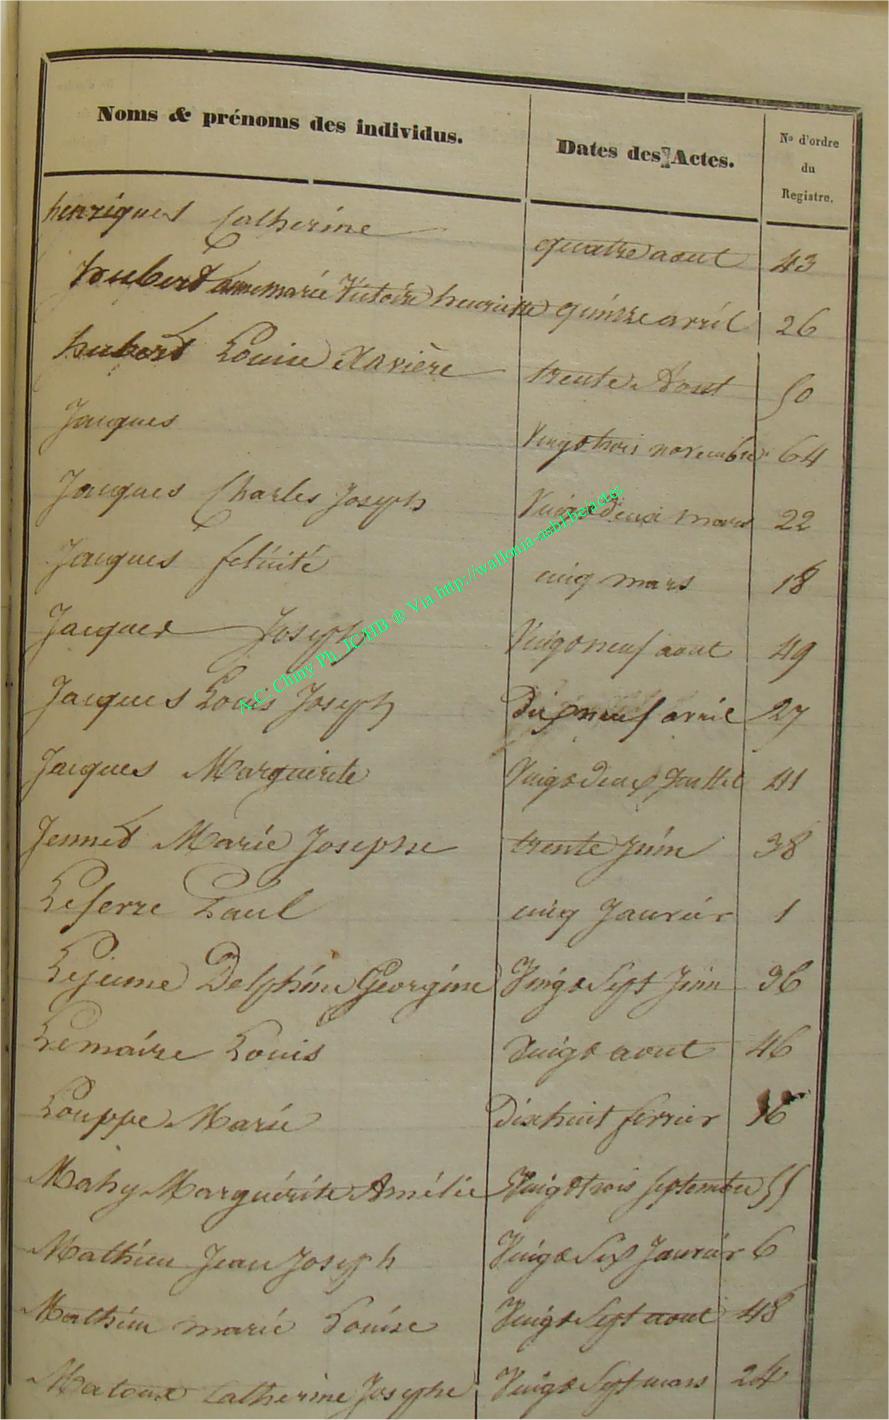 Noms & prénoms des individus. Dates des Actes. No d'ordre
du
Registre.
henriques Catherine quatre aout 43
houbert annemarie Victoire henriette quinze avril 26
hubert Louise Xavière trente Aout 50
Jacques Vingt trois novembre 64
Jacques Charles Joseph Vingt deux mars 22
Jacques felicité cinq mars 18
Jacques Joseph Vingt neuf aout 49
Jacques Louis Joseph Dix neuf avril 27
Jacques Marguerite Vingt deux Juillet 41
Jennet Marie Josephe trente Juin 38
Lefevre Paul cinq Janvier 1
Lejeune Delphine Georgine Vingt Sept Juin 36
Lemaire Louis Vingt aout 46
Louppe Marie Dix huit fevrier 16
Mahy Marguérite Amélie Vingt trois septembre 55
Mathieu Jean Joseph Vingt Six Janvier 6
Mathieu marie Louise Vingt Sept aout 48
Catherine Josephe Vingt Sept mars 24
A.C. Chiny Ph. IC.HB ® Via http://wallonia-asbl.be